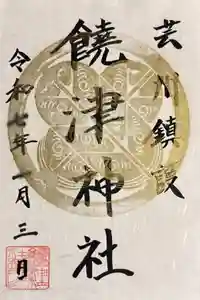 芸州鎮護
饒津神社
令和七年一月三日